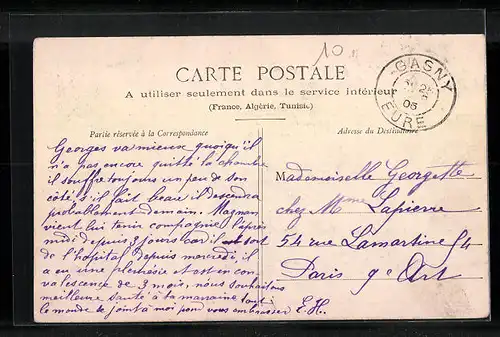 10
CARTE POSTALE
A utiliser seulement dans le service intérieur
(France, Algérie, Tunisie.)
GASNY
05
EURE
Partie réservée à la Correspondance
Georges va mieux quoiqu'il
n'a pas encore quitté la chambre
il souffre toujours un peu de son
côté, s'il fait beau il descendra
probablement demain. Magnan
vient lui tenir compagnie l'après
midi depuis 3 jours car il sort
de l'hopital depuis mercredi, il
a eu une pleurésie et est en con
valescence de 3 mois, nous souhaitons
meilleure santé à ta marraine tout
le monde se joint à moi pour vous embrasser E.H.
Adresse du Destinataire
Mademoiselle Georgette
chez Mme Lapierre
54 rue Lamartine 54
Paris 9e Art